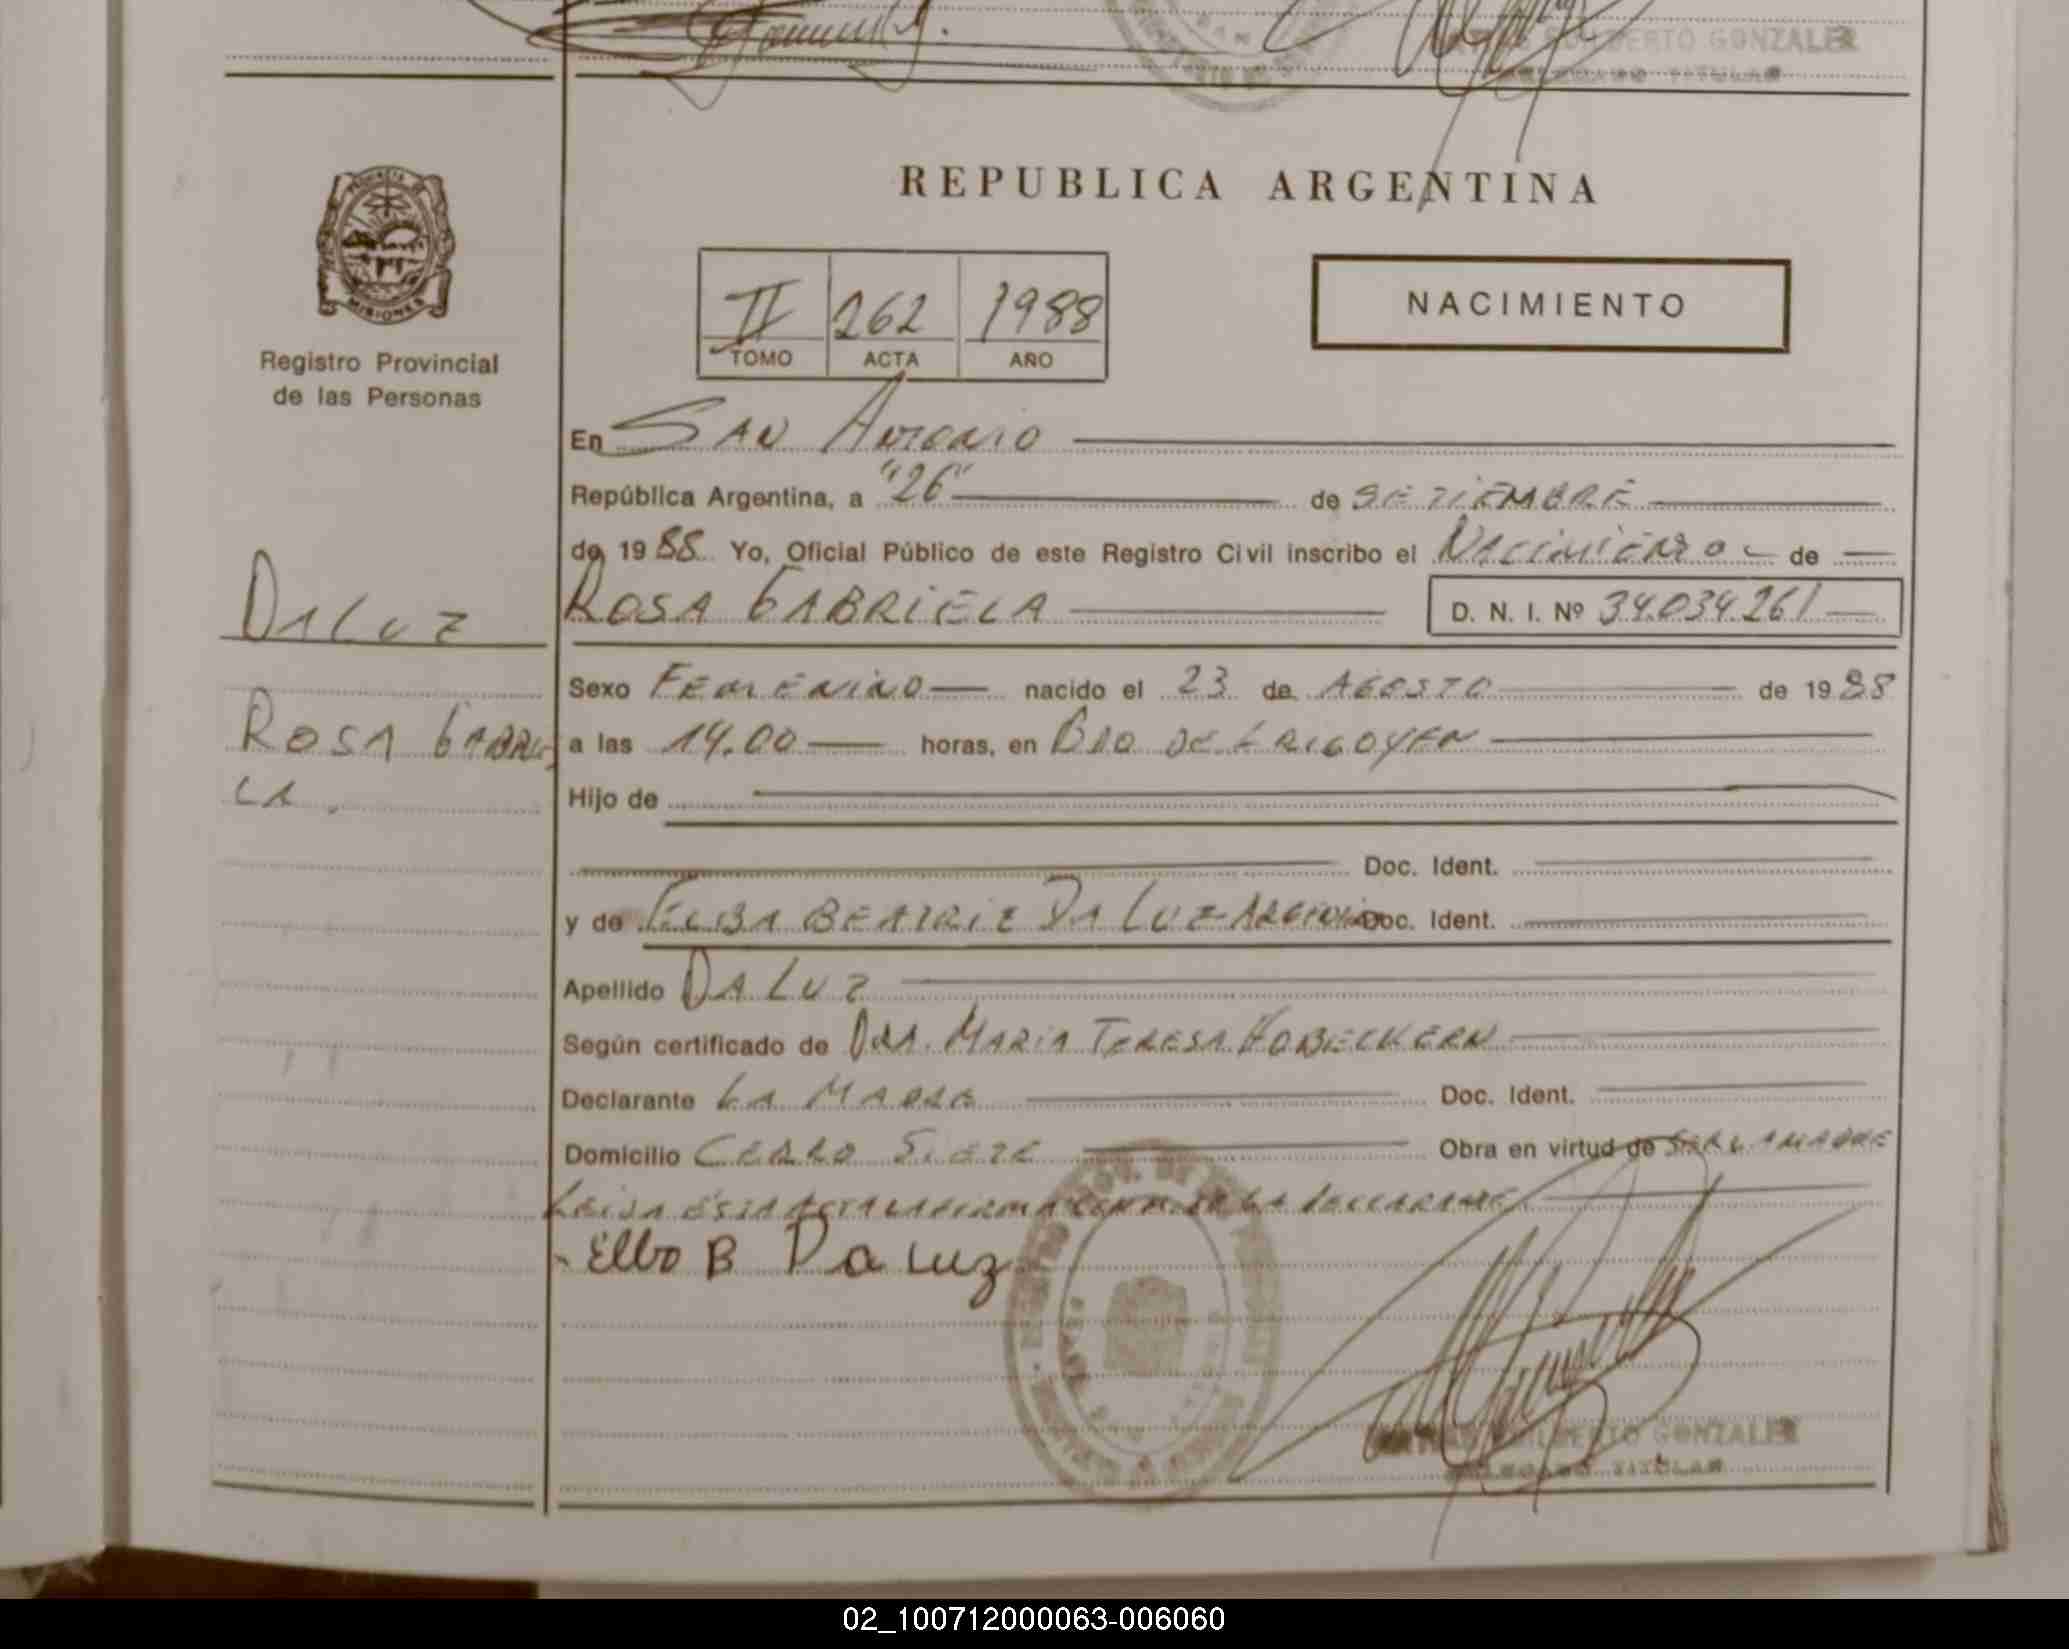 GUILBERTO GONZALEZ
DELEGADO TITULAR
PROVINCIA DE
MISIONES
Registro Provincial
de las Personas
REPUBLICA ARGENTINA
II 262 1988
TOMO ACTA AÑO
NACIMIENTO
En SAN ANTONIO
República Argentina, a "26" de SETIEMBRE
de 1988 Yo, Oficial Público de este Registro Civil inscribo el NACIMIENTO de
ROSA GABRIELA D. N. I. Nº 34.034.261
DA LUZ
ROSA GABRIE
LA.
Sexo FEMENINO nacido el 23 de AGOSTO de 1988
a las 14.00 horas, en BDO DE IRIGOYEN
Hijo de
Doc. Ident.
y de ELBA BEATRIZ DA LUZ-ARGENTINA Doc. Ident.
Apellido DA LUZ
Según certificado de DRA. MARIA TERESA
Declarante LA MADRE Doc. Ident.
Domicilio CERRO SIETE Obra en virtud de SER LA MADRE
LEIDA ESTA ACTA LA FIRMA CONMIGO LA DECLARANTE
Elba B Da Luz
GUILBERTO GONZALEZ
DELEGADO TITULAR
02_100712000063-006060